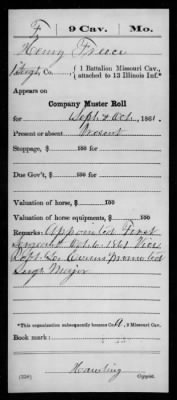 F | 9 Cav. | Mo.
Henry Freece
1 Sergt, Co. 1 Battalion Missouri Cav., attached to 13 Illinois Inf.*
Appears on
Company Muster Roll
for Sept & Oct, 1861.
Present or absent Present
Stoppage, $ 100
Due Gov't, $ 100
Valuation of horse, $ 100
Valuation of horse equipments, $ 100
Remarks: Appointed First
Sergeant Oct 1861 Vice
promoted
Sergt Major
*This organization subsequently became Co. A, 9 Missouri Cav.
Book mark:
(358) Copyist.